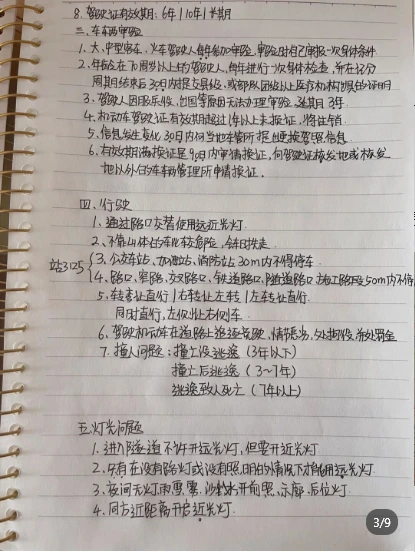 8. 驾驶证有效期：6年|10年|长期
三、车辆审验
1、大、中型客、火车驾驶人每年参加审验，审验时自己申报一次身体条件
2、年龄在70周岁以上的驾驶人，每年进行一次身体检查，并在记分
周期结束后30日内提交县级、或部队团级以上医疗机构出具的证明
3、驾驶人因服兵役、出国等原因无法办理审验，延期3年
4、机动车驾驶证有效期超过1年以上未换证，将注销
5、信息发生变化30日内向当地车管所提出更换驾照信息
6、有效期满换证是90日内申请换证，向驾驶证核发地或核发
地以外的车辆管理所申请换证.
四、行驶
1、通过路口交替使用远近光灯.
2、不靠山体的车比较危险，会车时先走.
站3口5
3、公交车站、加油站、消防站30m内不得停车
4、路口、窄路、交叉路口、铁道路口、隧道路口、施工路段50m内不得
5、转弯让直行|右转让左转|左转让直行.
同时直行，左侧让右侧车.
6、驾驶机动车在道路上追逐竞驶，情节恶劣，处拘役并处罚金
7、撞人问题：撞上没逃逸（3年以下）
撞上后逃逸（3~7年）
逃逸致人死亡（7年以上）
五、灯光问题
1、进入隧道不许开远光灯，但要开近光灯
2、只有在没有路灯或没有照明的情况下才能用远光灯
3、夜间无灯、雨、雪、雾、沙尘开前照、示廓、后位灯
4、同方近距离开启近光灯.
3/9